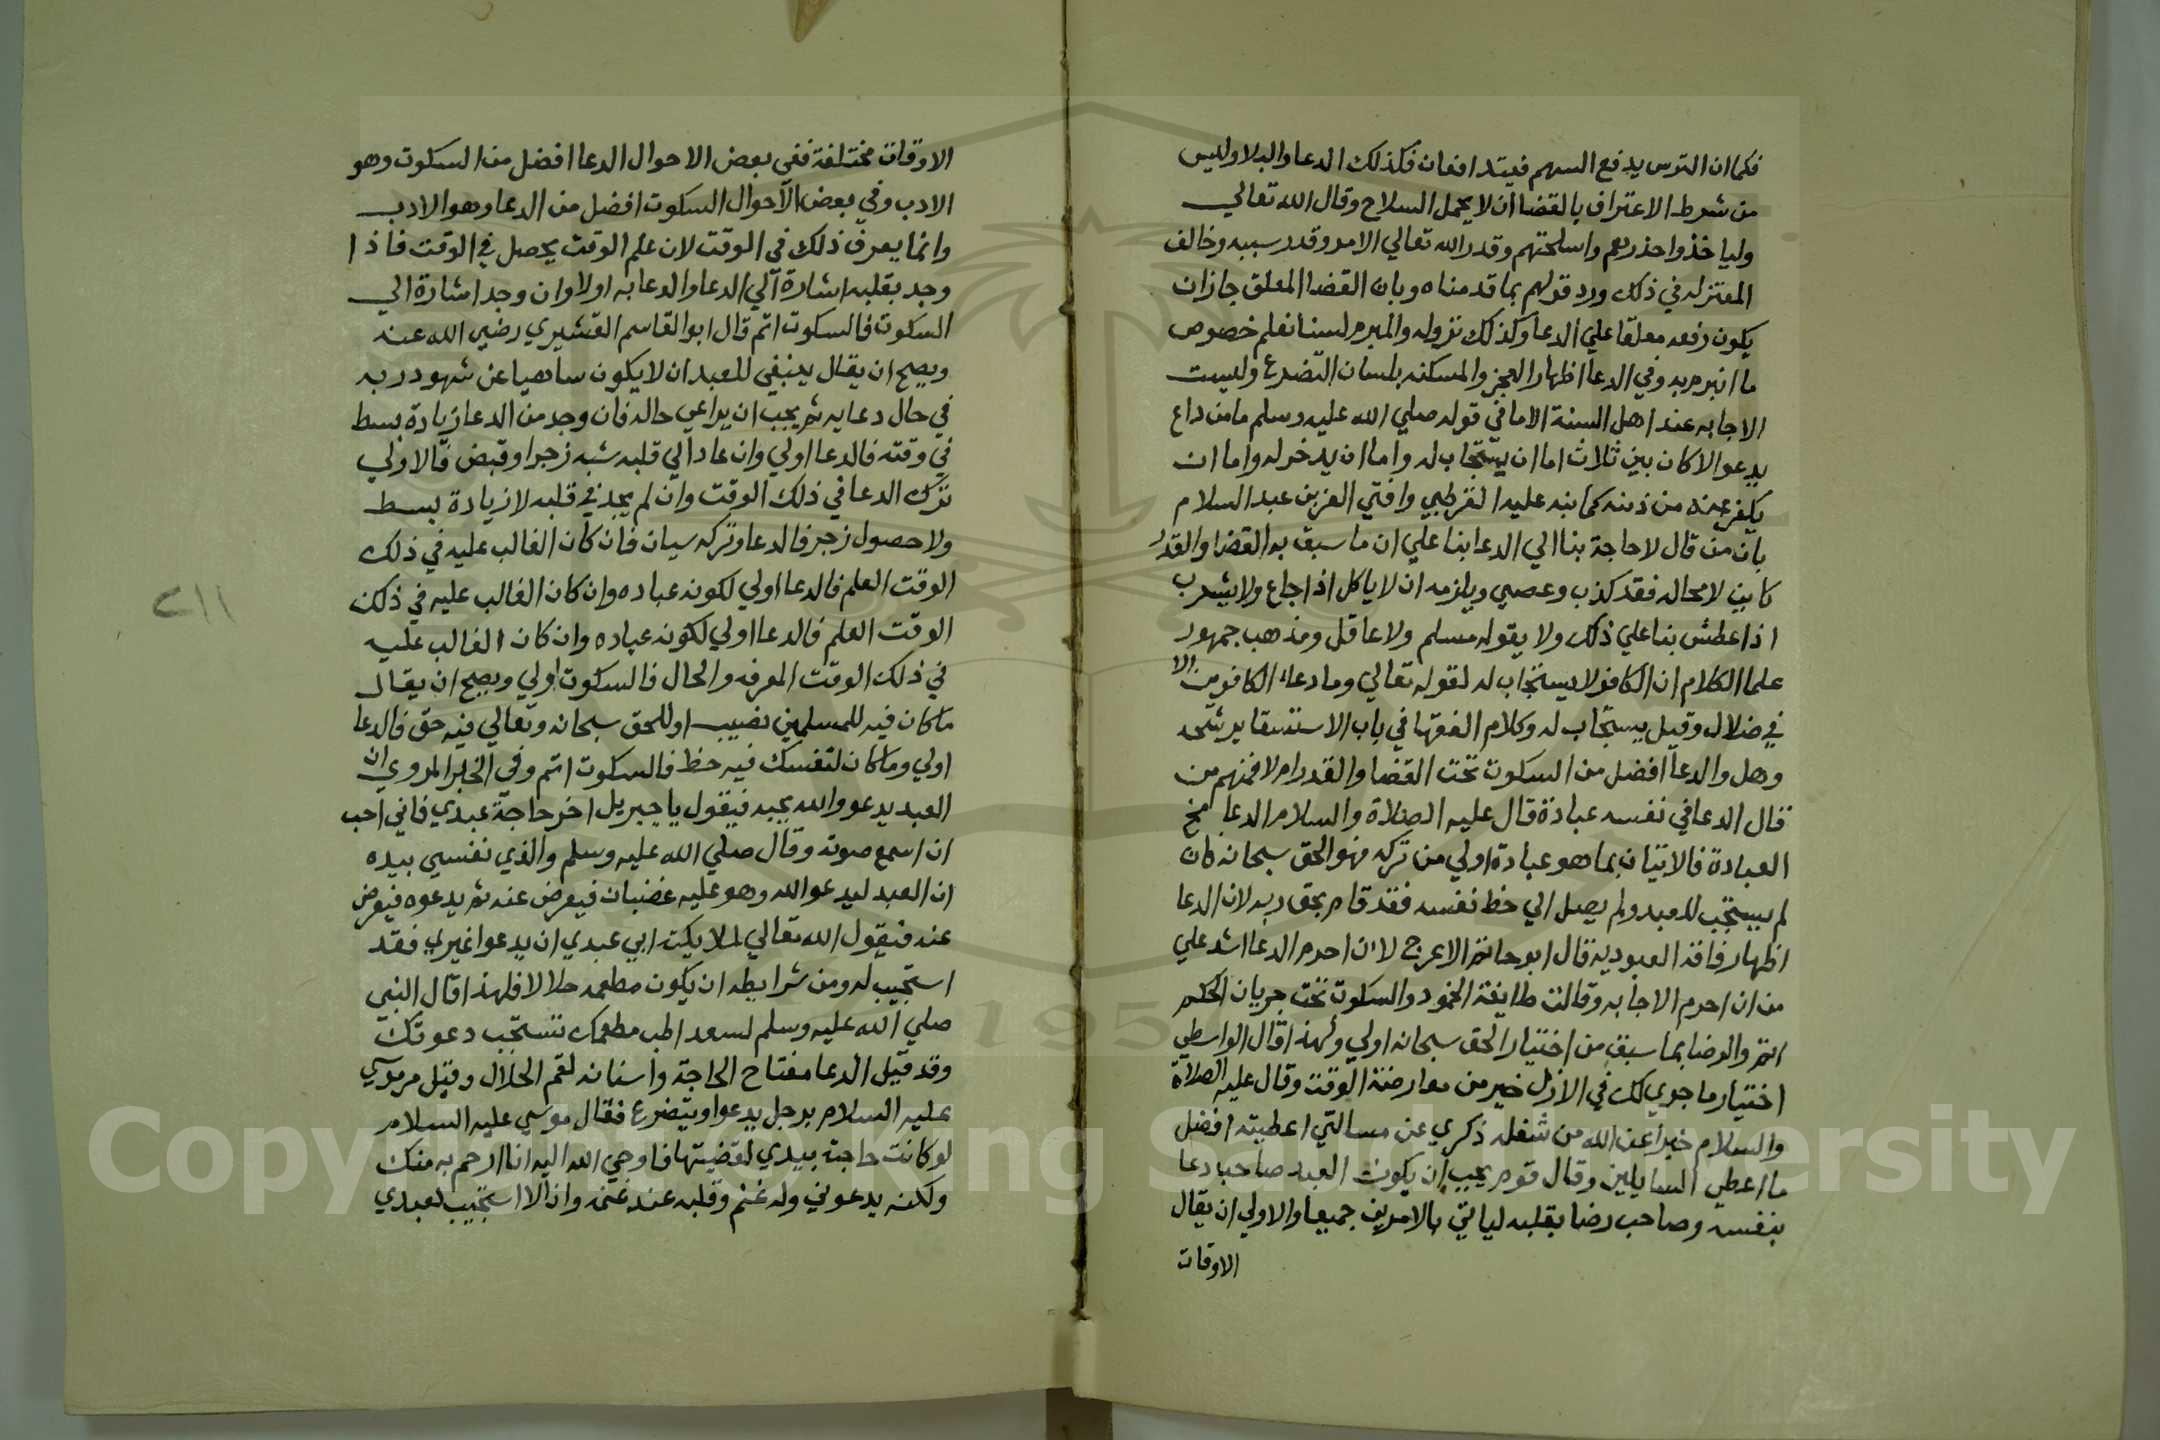 فكما ان الترس يدفع السهم فيتدافعان فكذلك الدعا والبلا وليس
من شرط الاعتراف بالقضا ان لا يحمل السلاح وقال الله تعالي
ولياخذوا حذرهم واسلحتهم وقدر الله تعالي الامر وقدر سببه وخالف
المعتزله في ذلك ورد قولهم بما قدمناه وبان القضا المعلق جازان
يكون رفعه معلقا علي الدعا وكذلك نزوله والمبرم لسنا نعلم خصوص
ما انبرم به وفي الدعا اظهار العجز والمسكنه بلسان التضرع وليست
الاجابه عند اهل السنة الا ما في قوله صلي الله عليه وسلم ما من داع
يدعوا الا كان بين ثلاث اما ان يستجاب له واما ان يدخر له واما ان
يكفر عنه من ذنبه كما نبه عليه القرطبي وافتي العز بن عبد السلام
بان من قال لا حاجة بنا الي الدعا بنا علي ان ما سبق به القضا والقدر
كاين لا محاله فقد كذب وعصي ويلزمه ان لا ياكل اذا جاع ولا يشرب
اذا عطش بنا علي ذلك ولا يقوله مسلم ولا عاقل ومذهب جمهور
علما الكلام ان الكافر لا يستجاب له لقوله تعالي وما دعاء الكافرين الا
في ضلال وقيل يستجاب له وكلام الفقها في باب الاستسقا يرشحه
وهل والدعا افضل من السكوت تحت القضا والقدر ام لا فمنهم من
قال الدعا في نفسه عبادة قال عليه الصلاة والسلام الدعا مخ
العبادة فالاتيان بما هو عبادة اولي من تركه فهو الحق سبحانه كان
لم يستجب للعبد ولم يصل الي حظ نفسه فقد قام بحق ربه لان الدعا
اظهار فاقة العبودية قال ابو حاتم الاعرج لان احرم الدعا اشد علي
من ان احرم الاجابه وقالت طايفة الخمود والسكوت تحت جريان الحكم
اتم والرضا بما سبق من اختيار الحق سبحانه اولي ولهذا قال الواسطي
اختيار ما جري لك في الازل خير من معارضة الوقت وقال عليه الصلاة
والسلام خبرا عن الله من شغله ذكري عن مسالتي اعطيته افضل
ما اعطي السايلين وقال قوم يجب ان يكون العبد صاحب دعا
بنفسه وصاحب رضا بقلبه لياتي بالامرين جميعا والاولي ان يقال
الاوقات
الاوقات مختلفة ففي بعض الاحوال الدعا افضل من السكوت وهو
الادب وفي بعض الاحوال السكوت افضل من الدعا وهو الادب
وانما يعرف ذلك في الوقت لان علم الوقت يحصل في الوقت فاذا
وجد بقلبه اشارة الي الدعا والدعا به اولا وان وجد اشارة الي
السكوت فالسكوت اتم قال ابو القاسم القشيري رضي الله عنه
ويصح ان يقال ينبغي للعبد ان لا يكون ساهيا عن شهود ربه
في حال دعايه ثم يجب ان يراعي حاله فان وجد من الدعا زيادة بسط
في وقته فالدعا اولي وان عاد الي قلبه شبه زجر او قبض فالاولي
ترك الدعا في ذلك الوقت وان لم يجد في قلبه لا زيادة بسط
ولا حصول زجر فالدعا وتركه سيان فان كان الغالب عليه في ذلك
الوقت العلم فالدعا اولي لكونه عباده وان كان الغالب عليه في ذلك
الوقت العلم فالدعا اولي لكونه عباده وان كان الغالب عليه
في ذلك الوقت المعرفه والحال فالسكوت اولي ويصح ان يقال
ما كان فيه للمسلمين نصيب او للحق سبحانه وتعالي فيه حق فالدعا
اولي وما كان لنفسك فيه حظ فالسكوت اتم وفي الخبر المروي ان
العبد يدعو والله يحبه فيقول يا جبريل اخر حاجة عبدي فاني احب
ان اسمع صوته وقال صلي الله عليه وسلم والذي نفسي بيده
ان العبد ليدعو الله وهو عليه غضبان فيعرض عنه ثم يدعوه فيعرض
عنه فيقول الله تعالي لملايكته ابي عبدي ان يدعوا غيري فقد
استجيب له ومن شرايطه ان يكون مطعمه حلالا فلهذا قال النبي
صلي الله عليه وسلم لسعد اطب مطعمك تستجب دعوتك
وقد قيل الدعا مفتاح الحاجة واسنانه لقم الحلال وقيل مر موسي
عليه السلام برجل يدعوا ويتضرع فقال موسي عليه السلام
لو كانت حاجته بيدي لقضيتها فاوحي الله اليه انا ارحم به منك
ولكنه يدعوني وله غنم وقلبه عند غنمه وانا لا استجيب لعبدي
٢١١
Copyright © King Saud University
1957